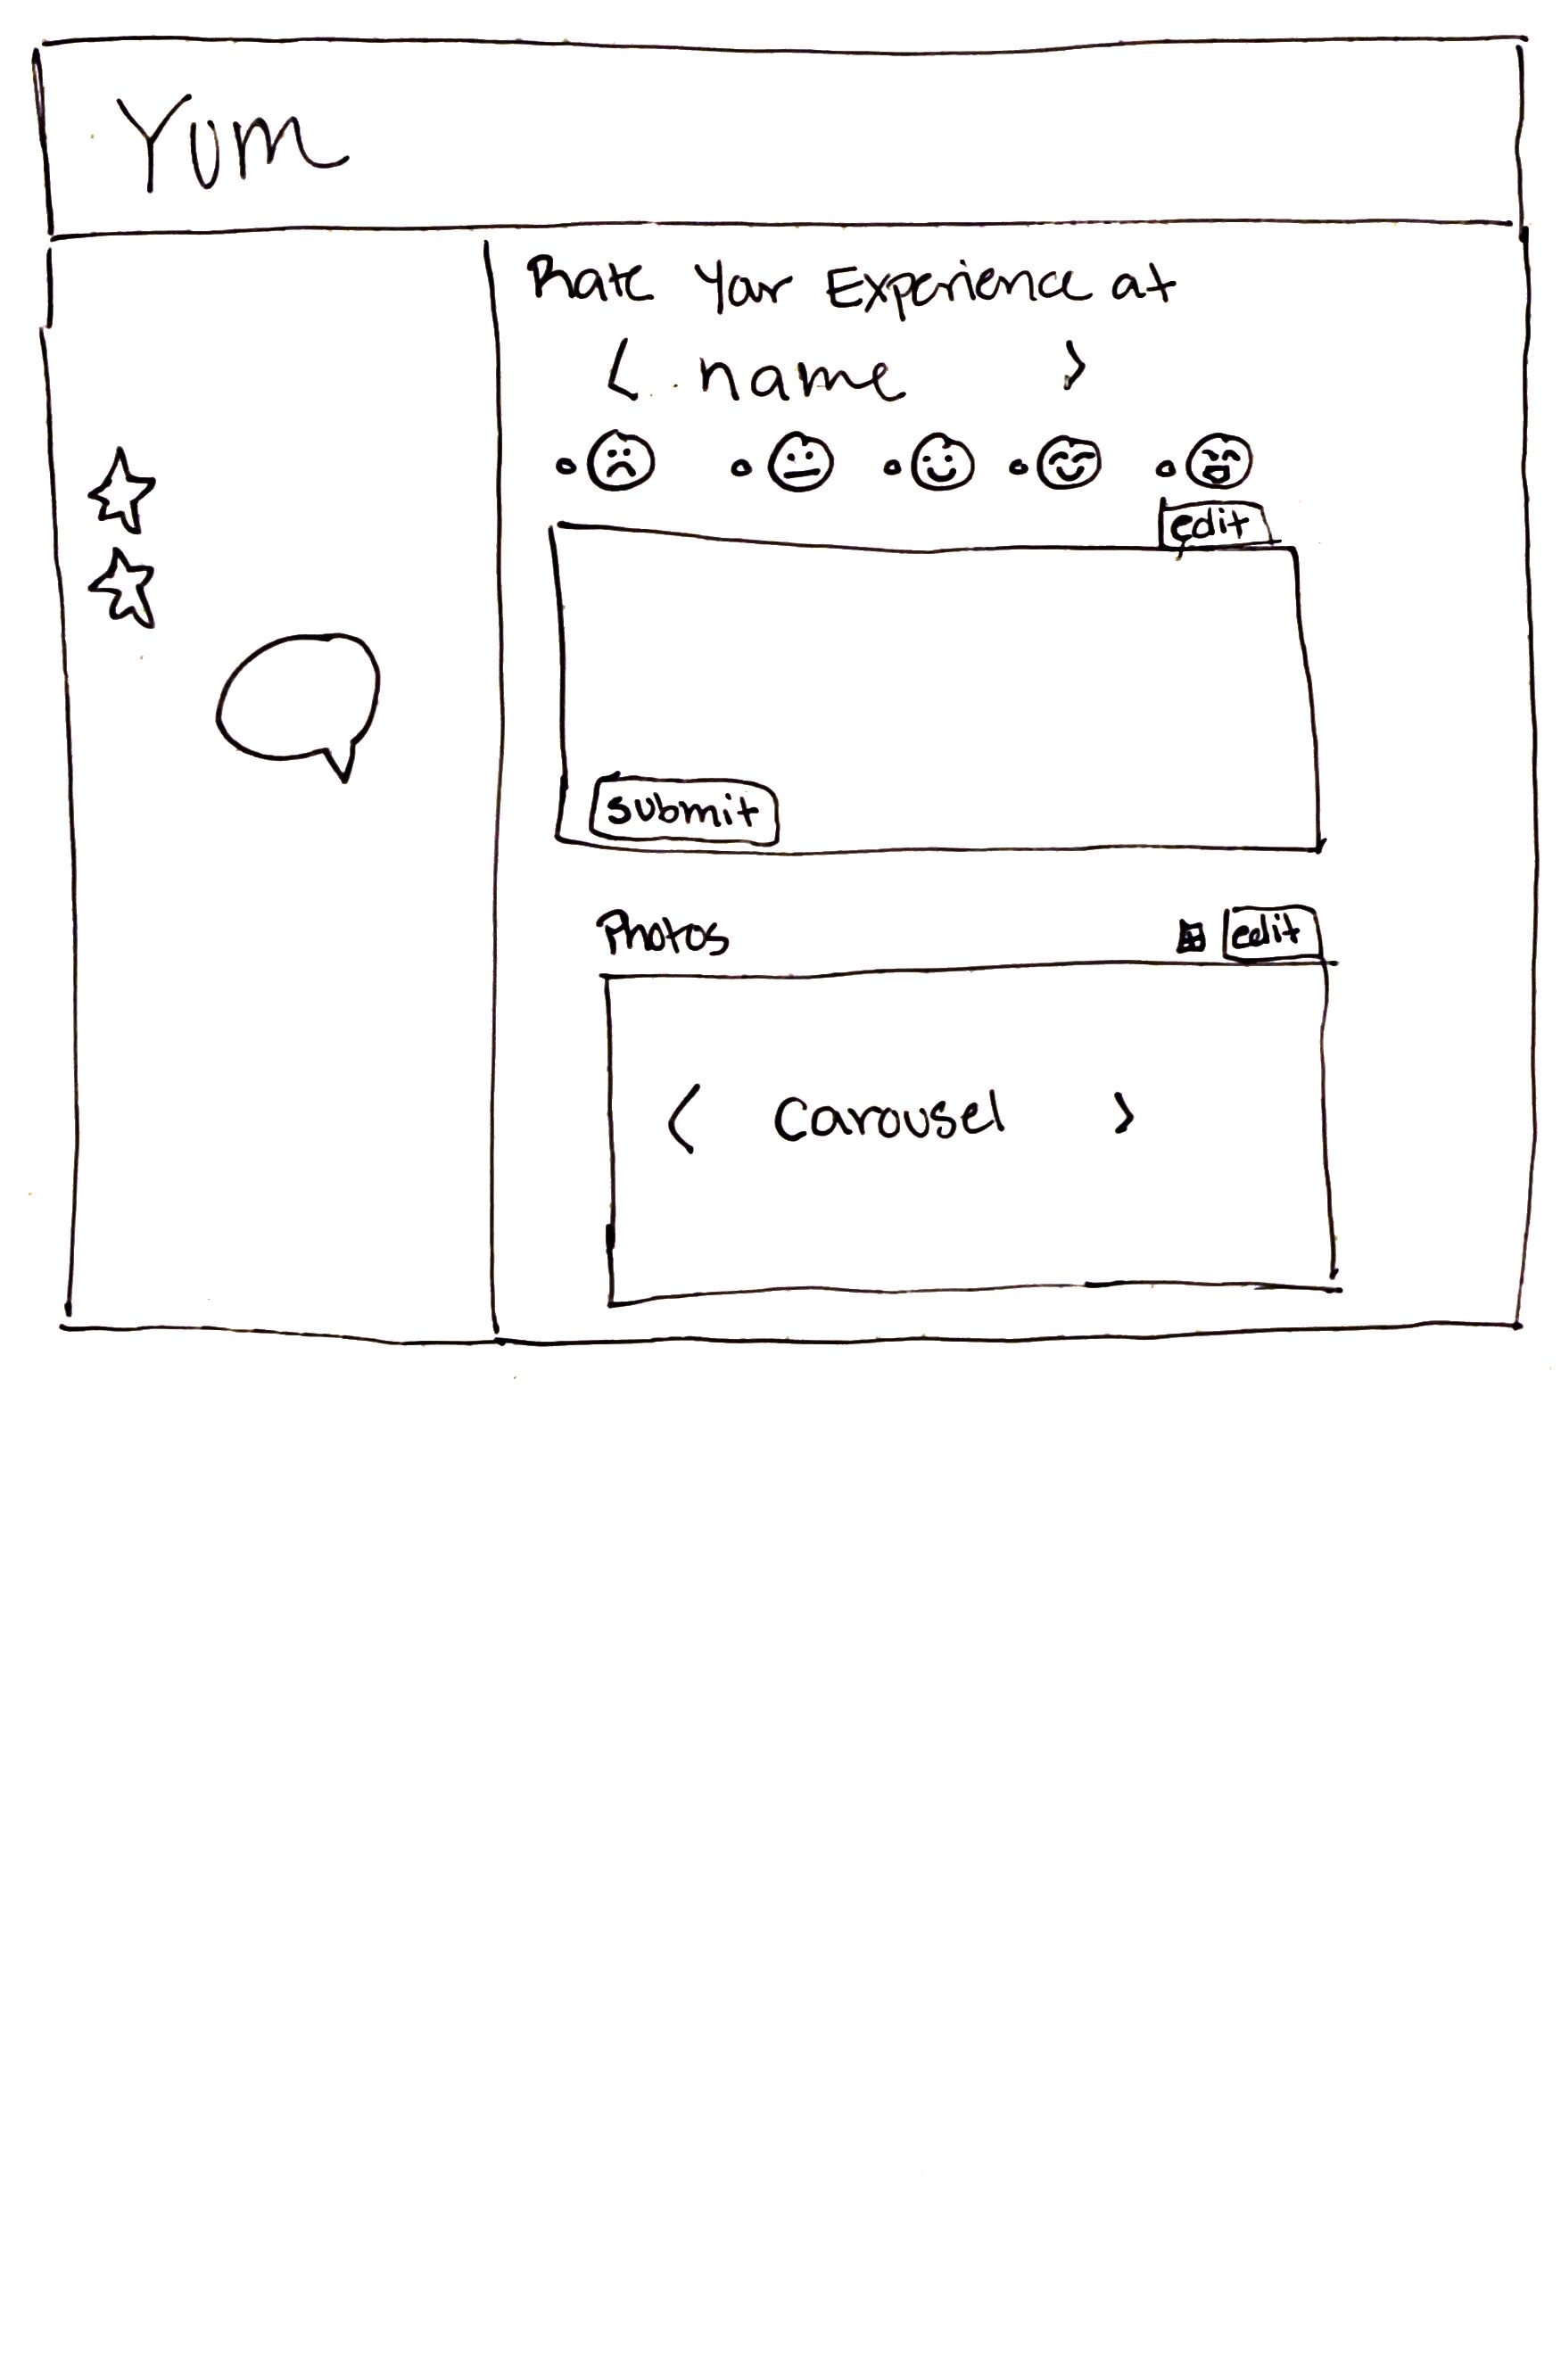 Yum
Rate Your Experience at
< name >
edit
submit
Photos edit
< Carousel >